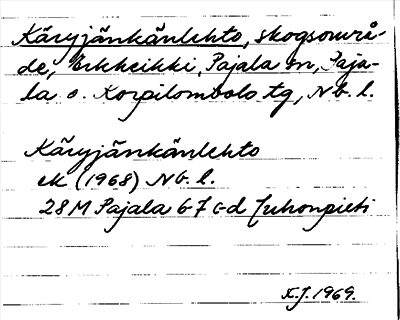 Käryjänkänlehto, skogsområ-
de, Erkheikki, Pajala sn, Paja-
la o. Korpilombolo tg, Nb. l.
Käryjänkänlehto
ek (1968) Nb. l.
28M Pajala 6-7 c-d Juhonpieti
K.J. 1969.